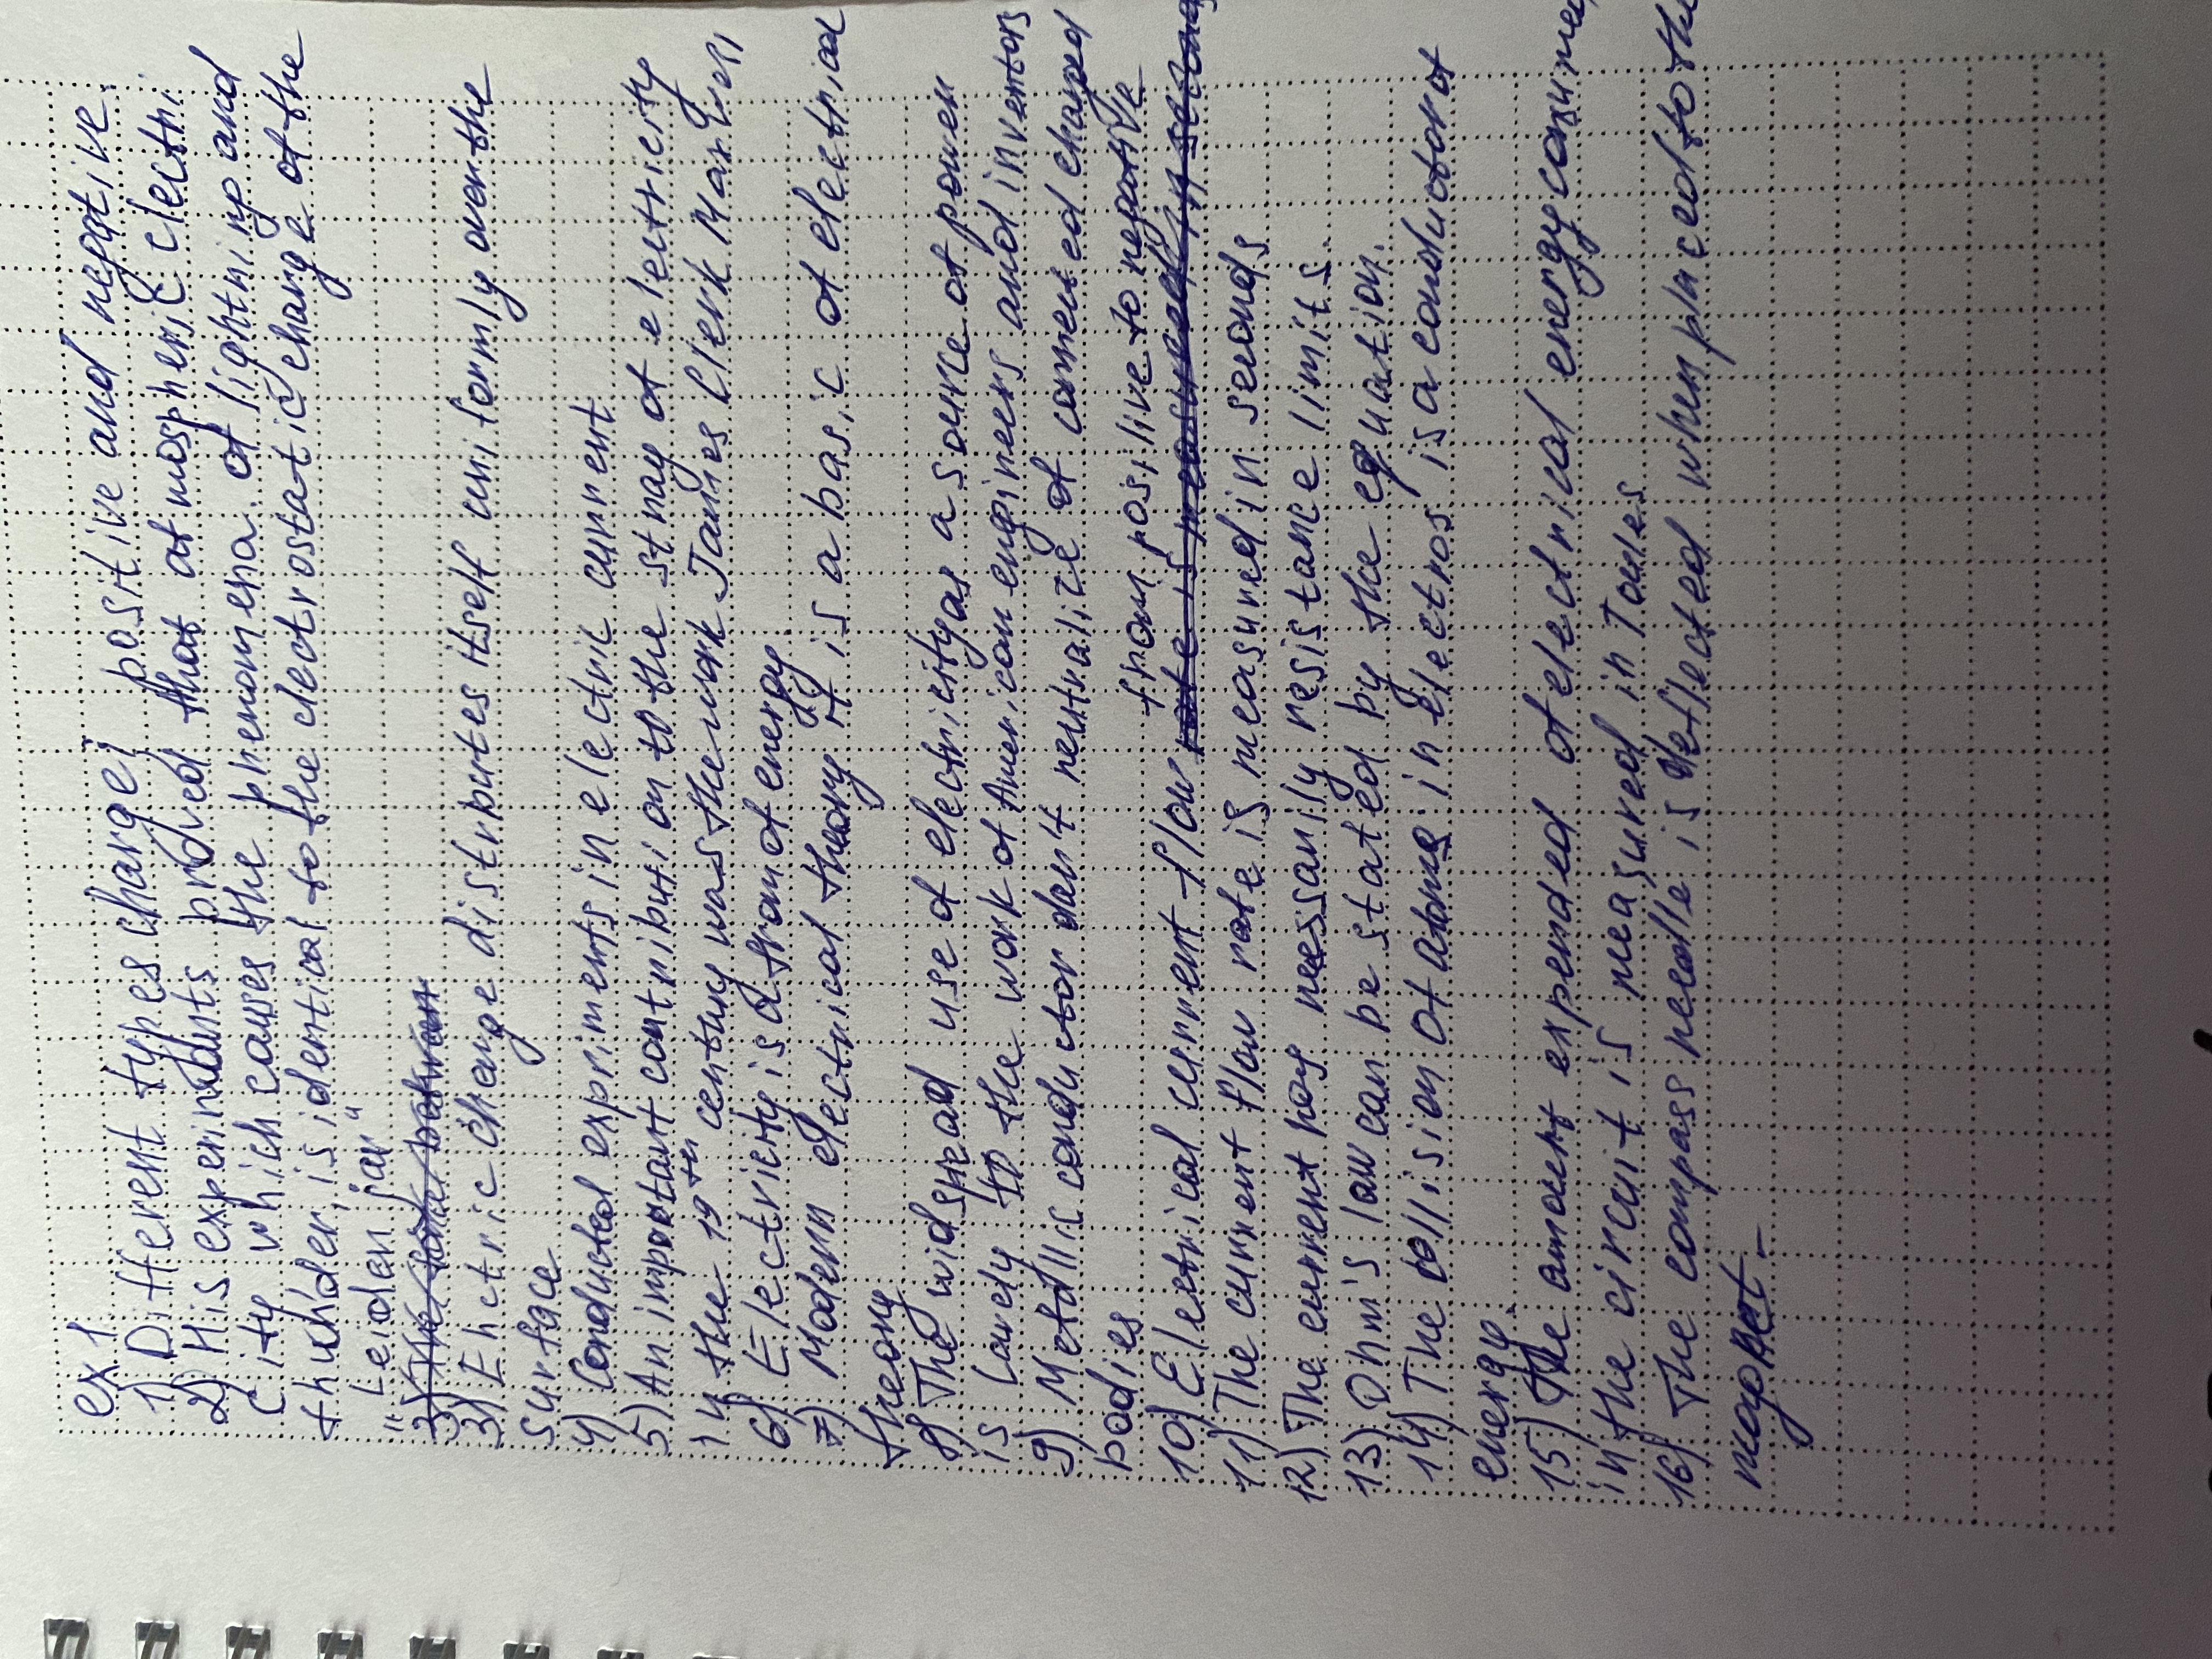 ex 1
1) Different types charge; positive and negative.
2) His experiments proved that atmospheric electri
city which causes the phenomena of lightning and
thuhder, is identical to the electrostatic charge of the
"Leiden jar"
3) Electric charge distributes itself uniformly over the
surface
4) Conducted expriments in electric current
5) An important contribution to the study of electricity
in the 19th century was the work James Clerk Maxwell
6) Electricity is a from of energy
7) Modern electrical theory it is a basic of electrical
theory
8) The widspread use of electricity as a source of power
is largely to the work of American engineers and inventors
9) Metallic conductor dant neutralize of connected charged
bodies
10) Electrical current flow from positive to negative
11) The current flow rate is measured in seconds
12) The current has necessarily resistance limits.
13) Ohm's law can be stated by the equation.
14) The collision of atoms in electros is a conductor of
energy.
15) The amount expended of electrical energy consumed
in the circuit is measured in Joules
16) The compass needle is deflected when placed to the
magnet.